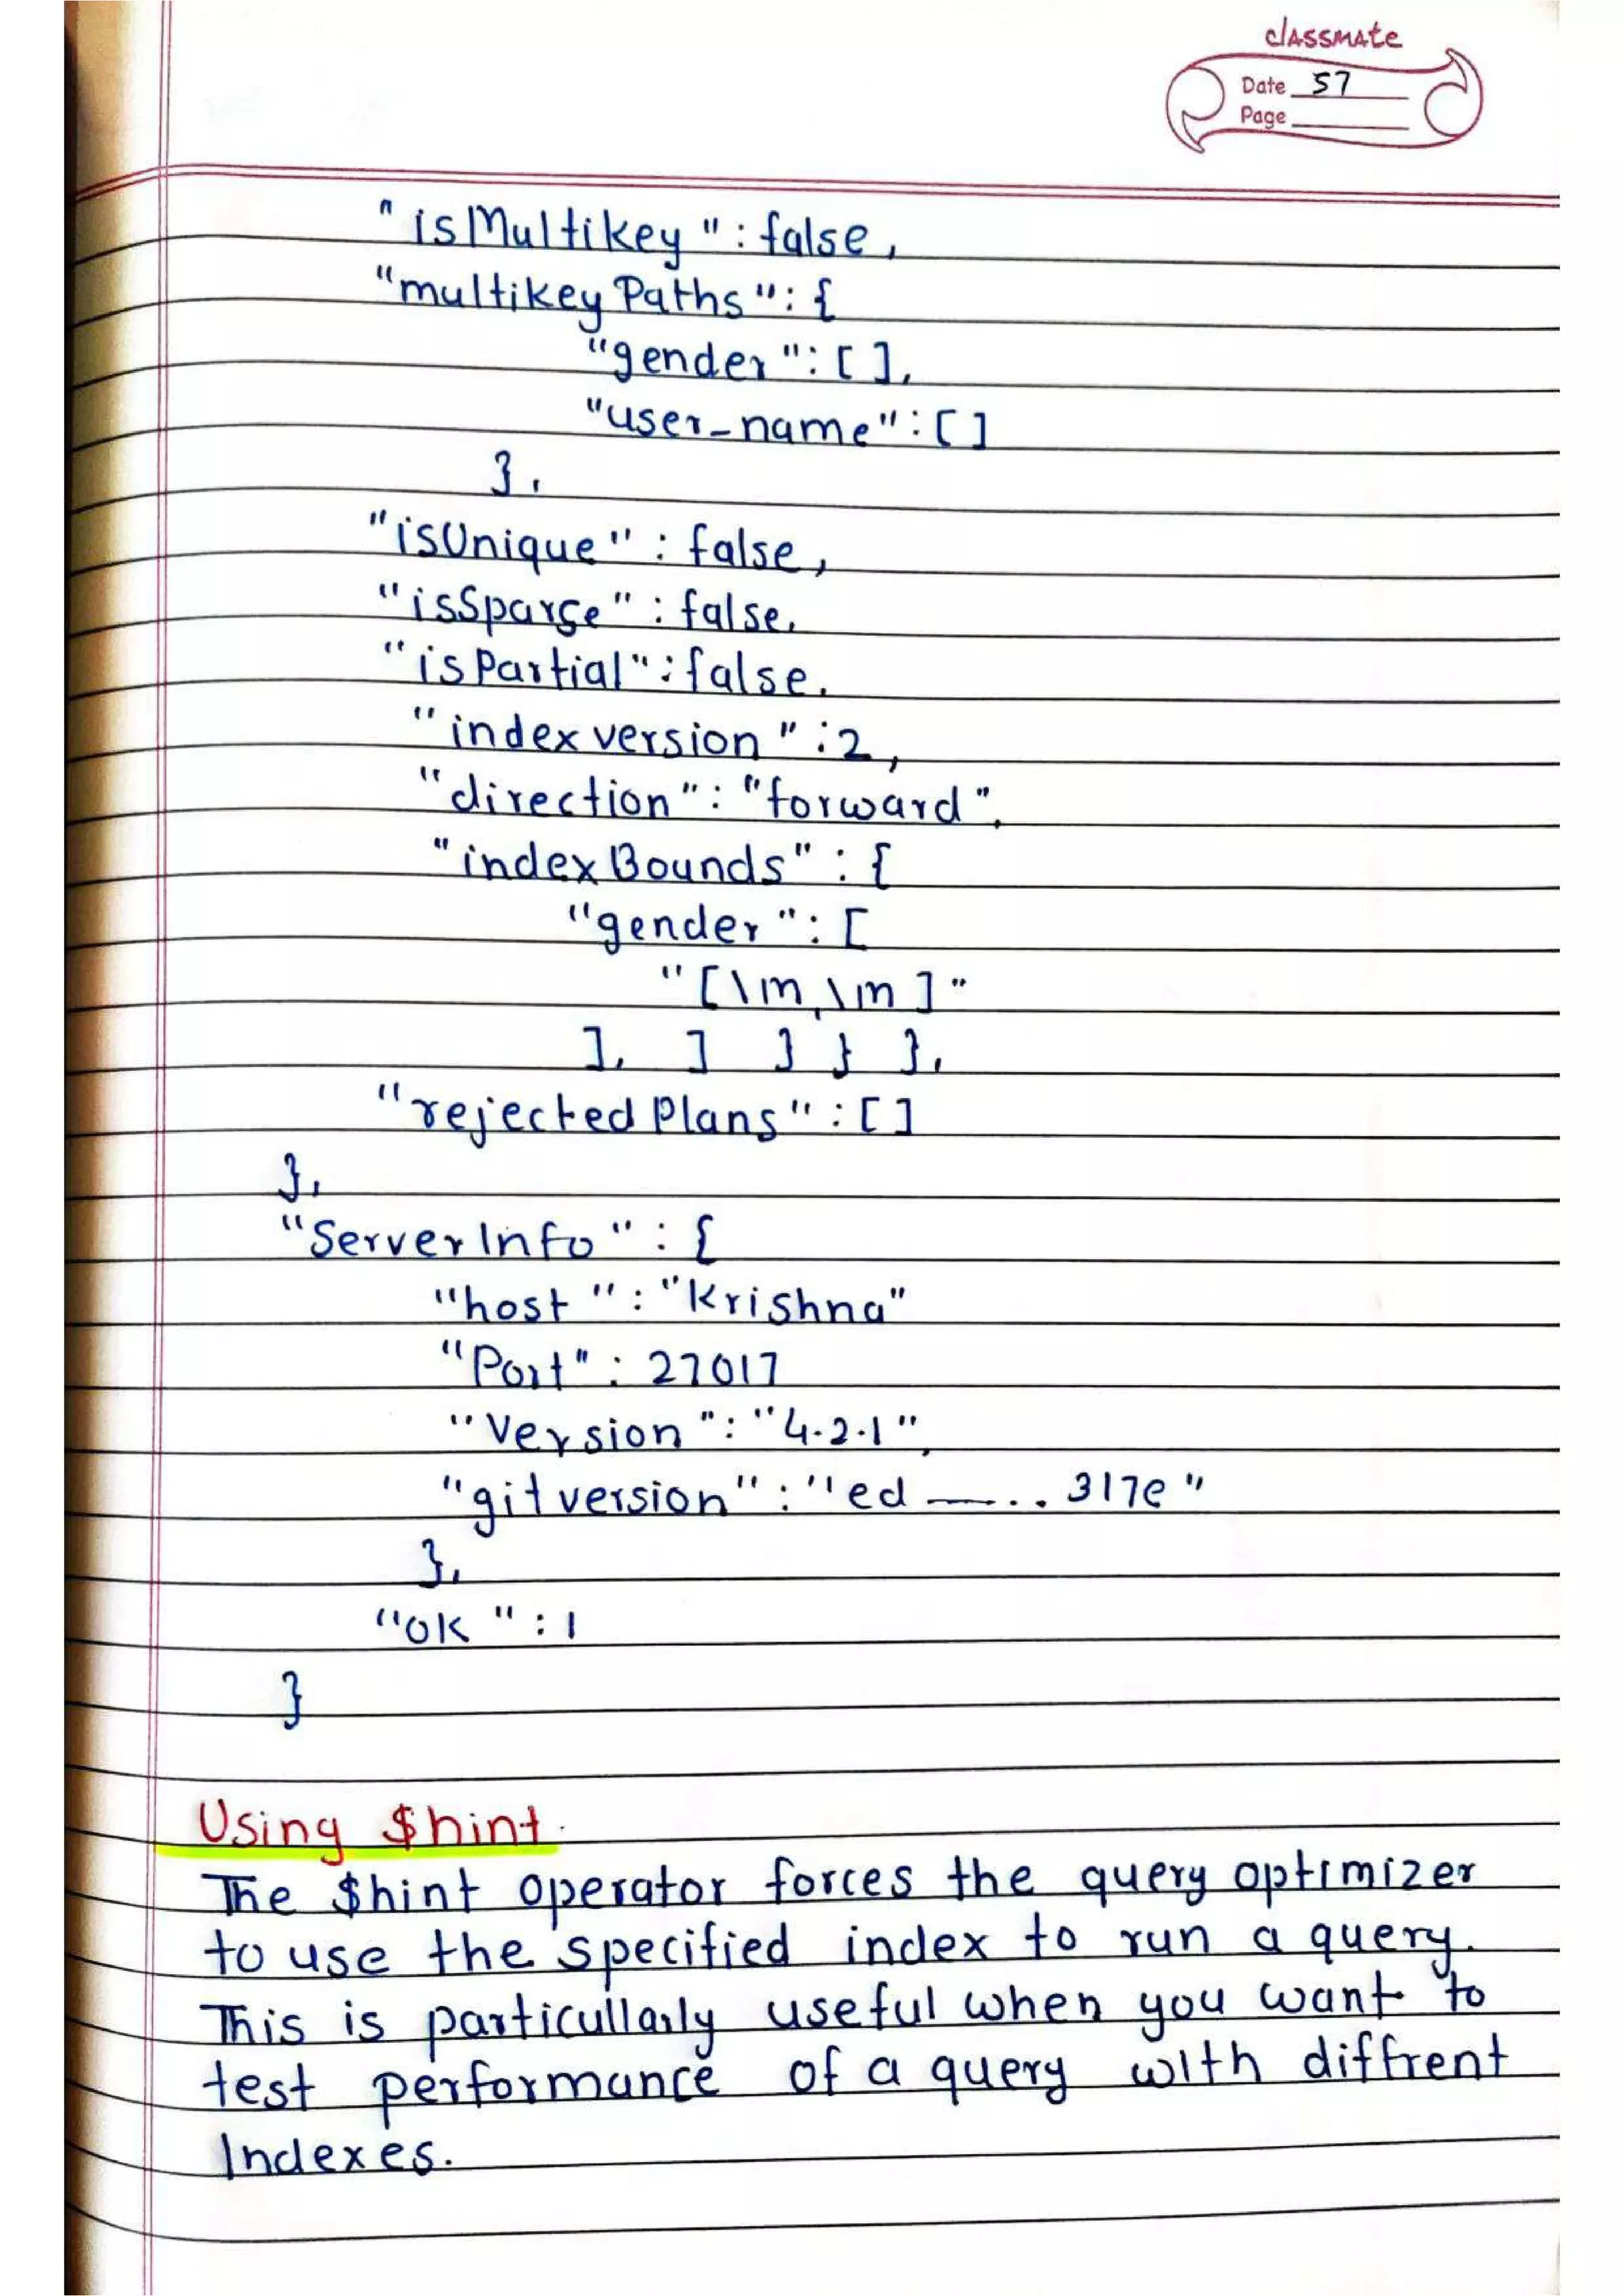 classmate
Date 57
Page
"isMultikey" : false,
"multikeyPaths" : {
"gender" : [ ],
"user_name" : [ ]
},
"isUnique" : false,
"isSparse" : false,
"isPartial" : false,
"index version" : 2,
"direction" : "forward",
"indexBounds" : {
"gender" : [
"[\m,\m]"
], ] } } },
"rejected Plans" : [ ]
},
"Server Info" : {
"host" : "Krishna"
"Port" : 27017
"Version" : "4.2.1",
"git version" : "ed —... 317e"
},
"OK" : 1
}
Using $hint.
The $hint operator forces the query optimizer
to use the specified index to run a query.
This is particullarly useful when you want to
test performance of a query with diffrent
Indexes.